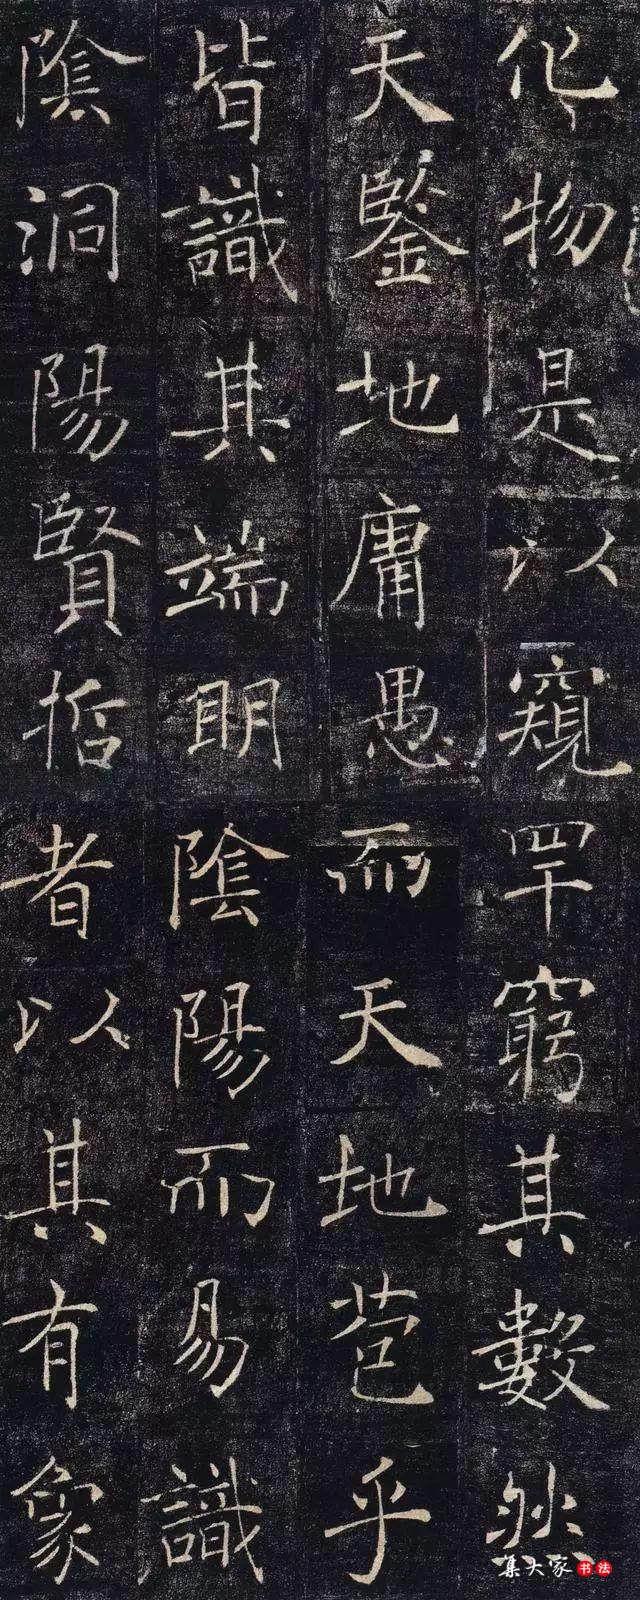 化物是以窺
天鑒地庸愚
皆識其端明
陰洞陽賢哲
罕窮其數然
而天地苞乎
陰陽而易識
者以其有象
集大家书法